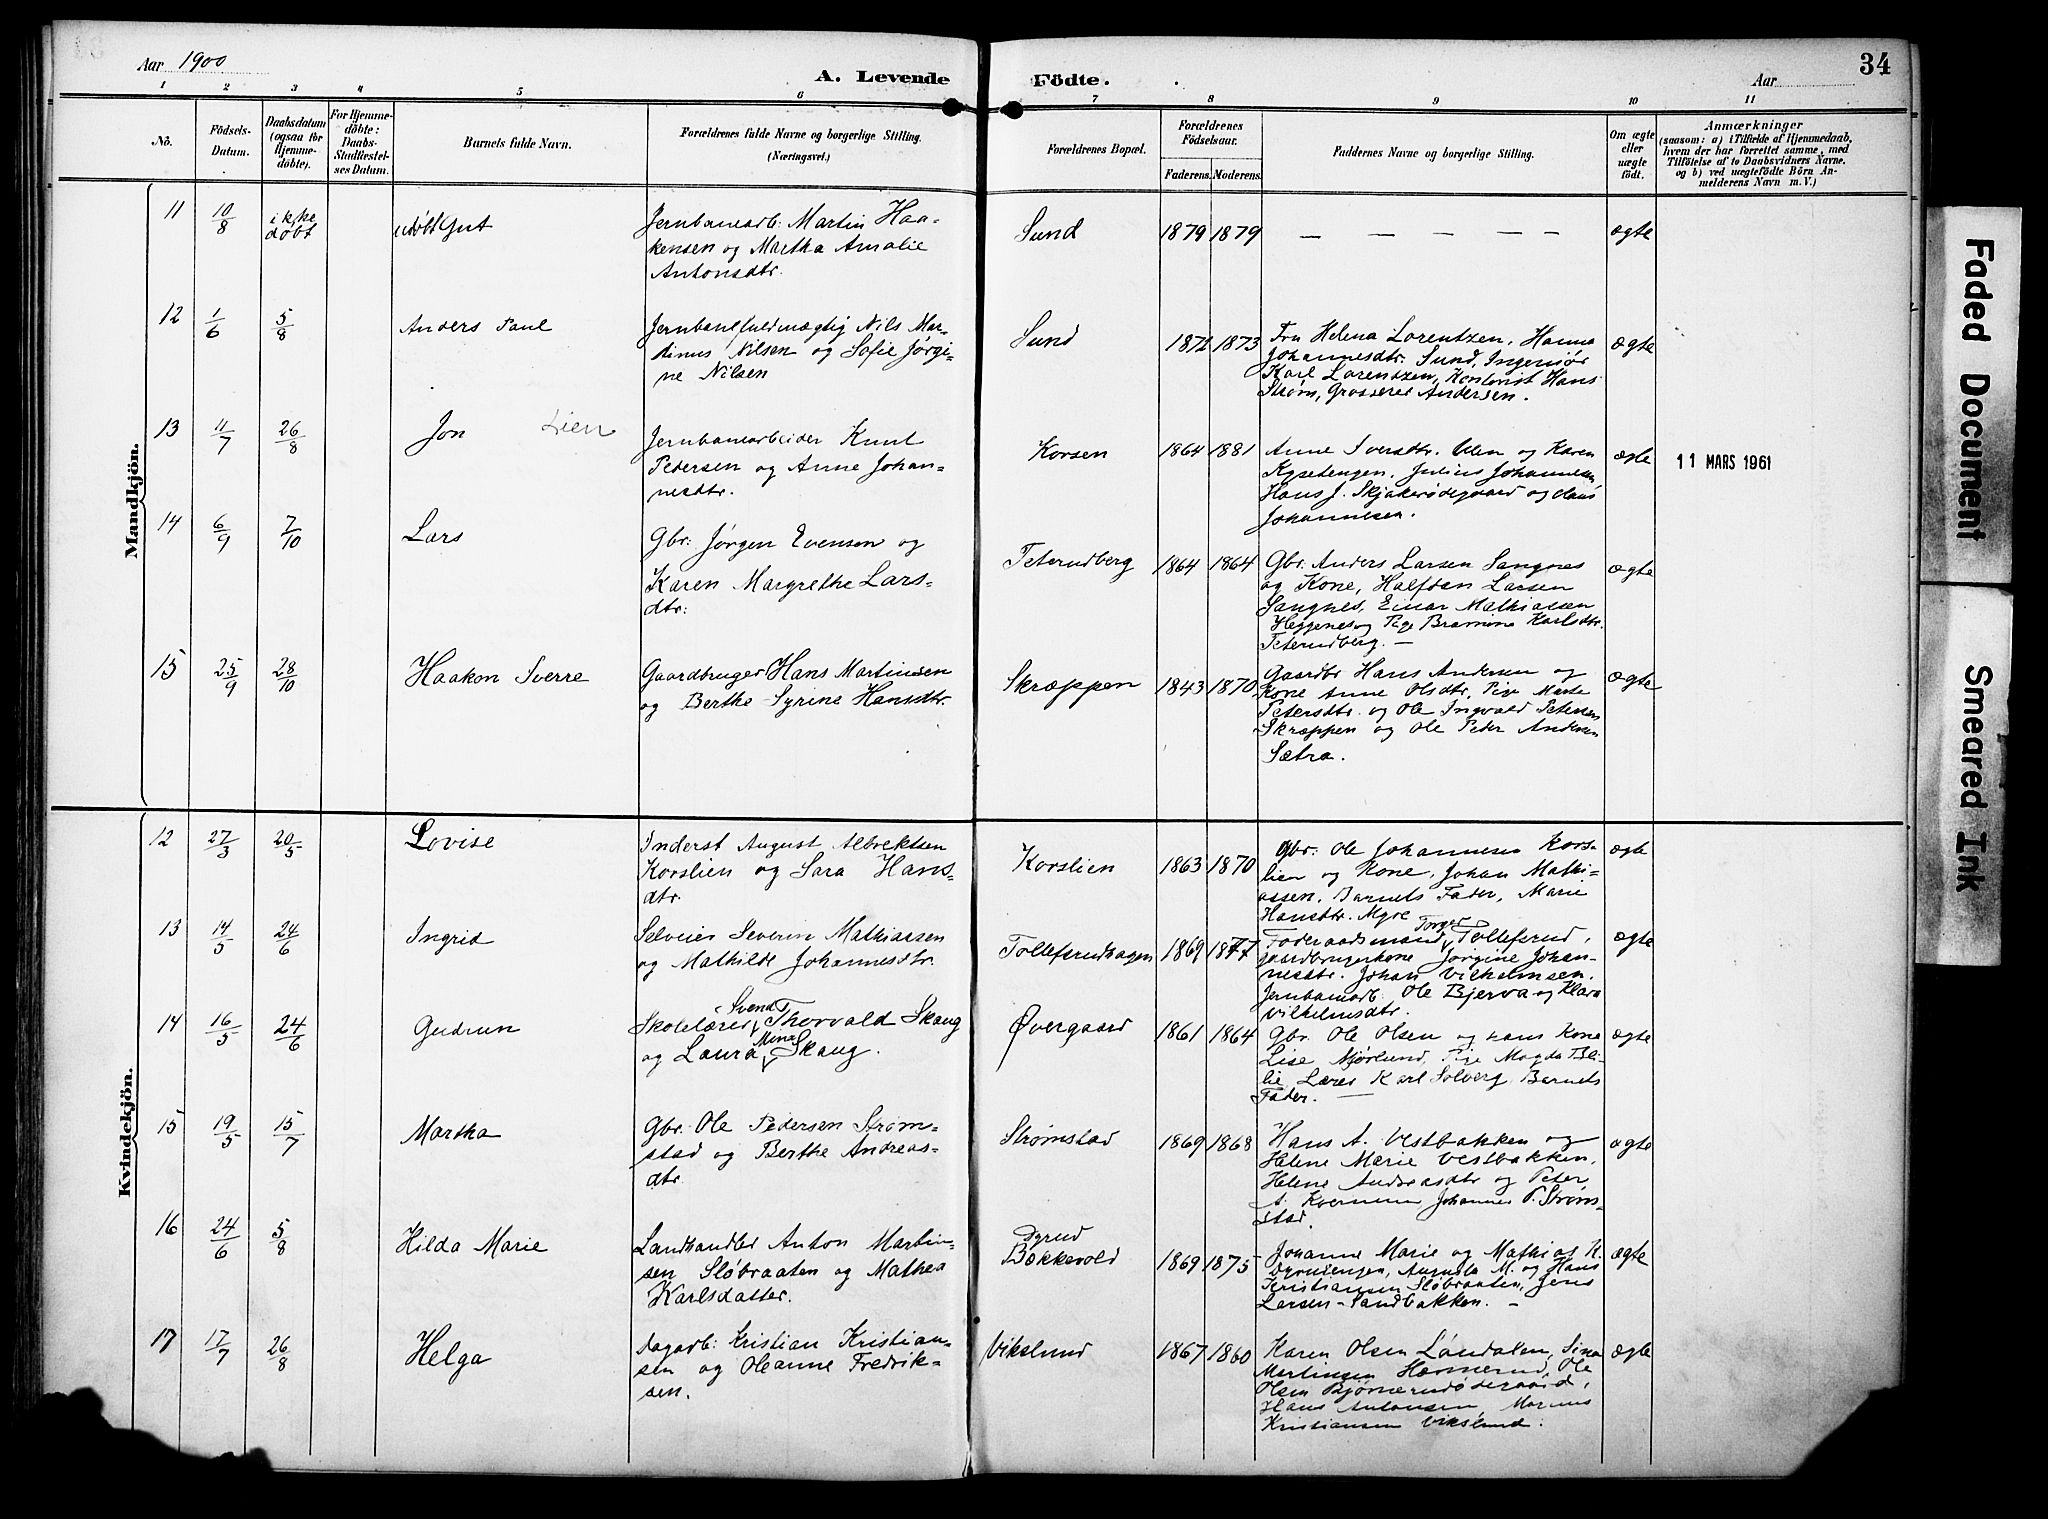 Aar 1900
A. Levende Födte.
Aar
34
1 2 3 4 5 6 7 8 9 10 11
No.
Födsels-Datum.
Daabsdatum (ogsaa for Hjemmedöbte).
For Hjemmedöbte: Daabs-Stadfæstelses Datum.
Barnets fulde Navn.
Forældrenes fulde Navne og borgerlige Stilling. (Næringsvei.)
Forældrenes Bopæl.
Forældrenes Födselsaar.
Faderens. Moderens.
Faddernes Navne og borgerlige Stilling.
Om ægte eller uægte födt.
Anmærkninger
(saasom: a) i Tilfælde af Hjemmedaab, hvem der har forrettet samme, med Tilföielse af to Daabsvidners Navne. og b) ved uægtefödte Börn Anmelderens Navn m. V.)
Mandkjön.
11 10/8 ikke døbt udøbt Gut
Jernbanearb: Martin Haa-
kensen og Martha Amalie
Antonsdtr.
Sund 1879 1879 — — — — — — ægte
12 1/6 5/8 Anders Paul
Jernbanefuldmægtig Nils Mar-
tinus Nilsen og Sofie Jørgi-
ne Nilsen
Sund 1872 1873
Fru Helena Lorentzen, Hanna
Johannesdtr. Sund, Ingeniør
Karl Lorentzen, Kontorist Hans
Strøm, Grosserer Andersen.
ægte
13 11/7 26/8 Jon Lien
Jernbanearbeider Knut
Pedersen og Anne Johan-
nesdtr.
Korsen 1864 1881
Anne Iversdtr. Ulen og Karen
Kysetengen, Julius Johannesen
Hans J. Skjakerødegaard og Hans
Johannesen.
ægte 11 MARS 1961
14 6/9 7/10 Lars
Gbr: Jørgen Evensen og
Karen Margrethe Lars-
dtr:
Peterudberg 1864 1864
Gbr. Anders Larsen Sangnes
og Kone, Halfdan Larsen
Sangnes, Einar Mathiassen
Heggenes og Pige Bramine Karlsdtr.
Peterudberg. —
ægte
15 25/9 28/10 Haakon Sverre
Gaardbruger Hans Martinsen
og Berthe Syrine Hansdtr.
Skræppen 1843 1870
Gaardbr Hans Andersen og
Kone Anne Olsdtr, Pige Marte
Petersdtr. og Ole Ingvald Petersen
Skræppen og Ole Peder Andersen
Sætra.
ægte
Kvindekjön.
12 27/3 20/5 Lovise
Inderst August Albrektsen
Korslien og Sara Hans-
dtr.
Korslien 1863 1870
Gbr. Ole Johannesen Kors-
lien og Kone, Johan Mathi-
assen, Barnets Fader, Marie
Hansdtr. Myre
ægte
13 14/5 24/6 Ingrid
Selveier Severin Mathiassen
og Mathilde Johannesdtr.
Tollefsrudhagen 1869 1877
Føderaadsmand Torger Tollefsrud,
gaardbrugerkone Jørgine Johan-
nesdtr. Johan Vilhelmsen,
Jernbanearb. Ole Bjerva og Klara
Vilhelmsdtr.
ægte
14 16/5 24/6 Gudrun
Skolelærer Svend Thorvald Skaug
og Laura Mina Skaug.
Øvergaard 1861 1864
Gbr. Ole Olsen og hans Kone
Lise Mjørlund, Pige Magda Bli-
lie Lærer Karl Solberg Barnets
Fader. —
ægte
15 19/5 15/7 Martha
Gbr. Ole Pedersen Strøm-
stad og Berthe Andreas-
dtr.
Strømstad 1869 1868
Hans A. Vestbakken og
Helene Marie Vestbakken,
Helene Andreasdtr og Peter
A. Kvernum Johannes P. Strøm-
stad.
ægte
16 24/6 5/8 Hilda Marie
Landhandler Anton Martin-
sen Sløbraaten og Mathea
Karlsdatter.
Dyrud
Bækkevold 1869 1875
Johanne Marie og Mathias K.
Dyrudengen, Augusta M. og Hans
Kristiansen Sløbraaten, Jens
Larsen-Sandbakken. —
ægte
17 17/7 26/8 Helga
Dagarb: Kristian Kristian-
sen og Oleanne Fredrik-
sen.
Vikslund 1867 1860
Karen Olsen Løndalen, Sina
Martinsen Hæmerud, Ole
Olsen Bjørnerudødegaard,
Hans Antonsen Marius
Kristiansen Vikslund.
ægte
Faded Document
Smeared Ink